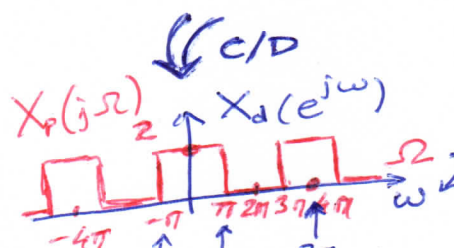 C/D
X_p(jΩ) 2 X_d(e^{jω})
Ω
-4π -π π 2π 3π 4π ω